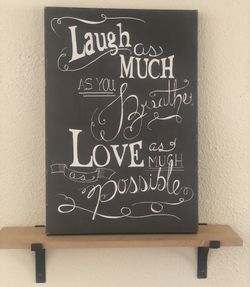 Laugh as
MUCH
AS YOU
Breathe
LOVE as
MUCH
as
Possible